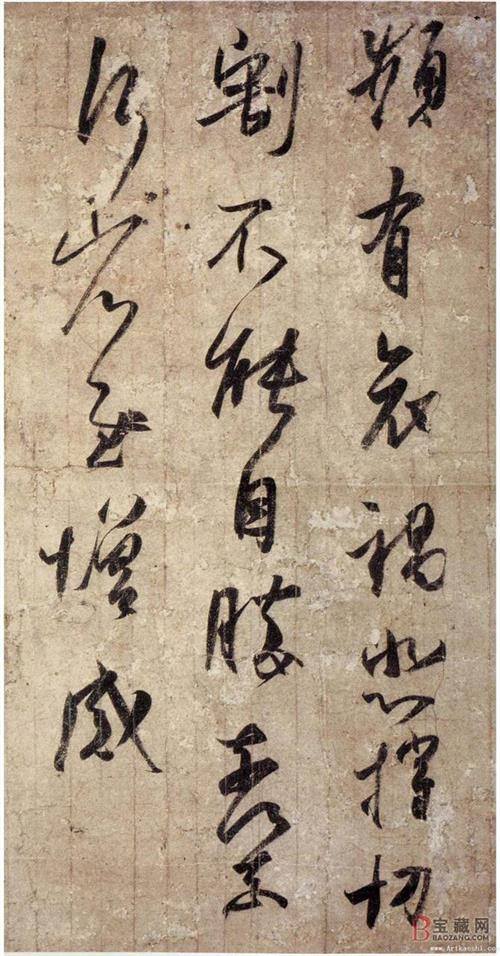 频有哀祸悲摧切
割不能自胜奈何
省慰增感
B宝藏网
BAOZANG.COM
www.Artkaoshi.cn